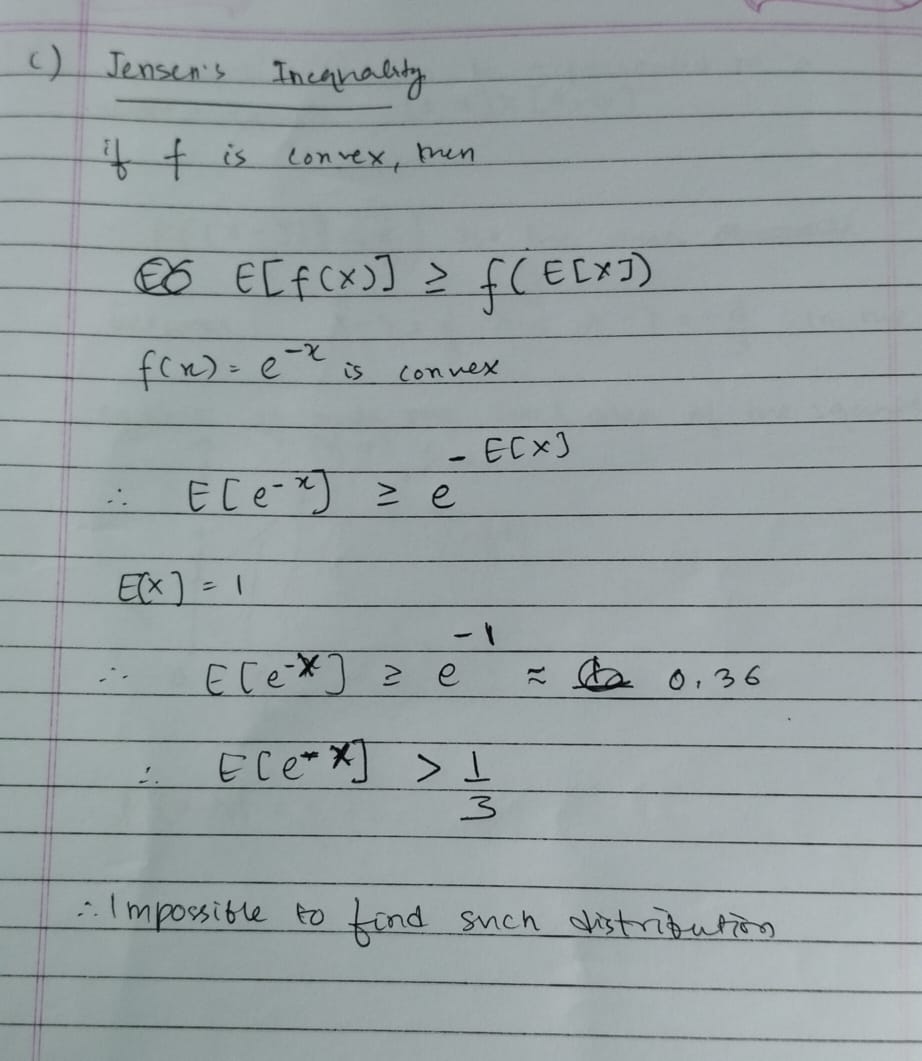 c) Jensen's Inequality
if f is convex, then
E[f(X)] ≥ f(E[X])
f(x) = e^-x is convex
∴ E[e^-x] ≥ e^-E[X]
E[X] = 1
∴ E[e^-X] ≥ e^-1 ≈ 0.36
∴ E[e^-X] > 1/3
∴ Impossible to find such distribution